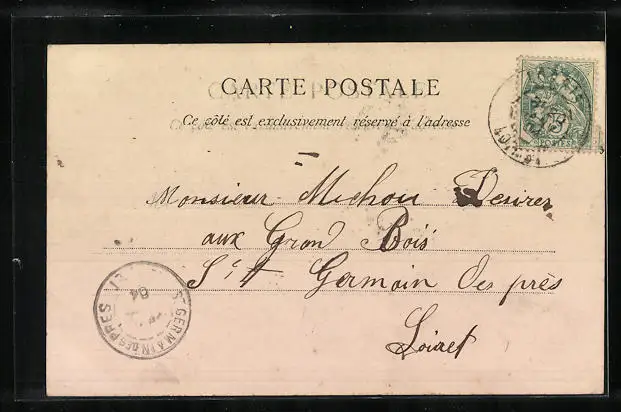 CARTE POSTALE
Ce côté est exclusivement réservé à l'adresse
Monsieur Michou Desirée
aux Grand Bois
St Germain des près
Loiret
POSTES
ST GERMAIN DES PRES
04